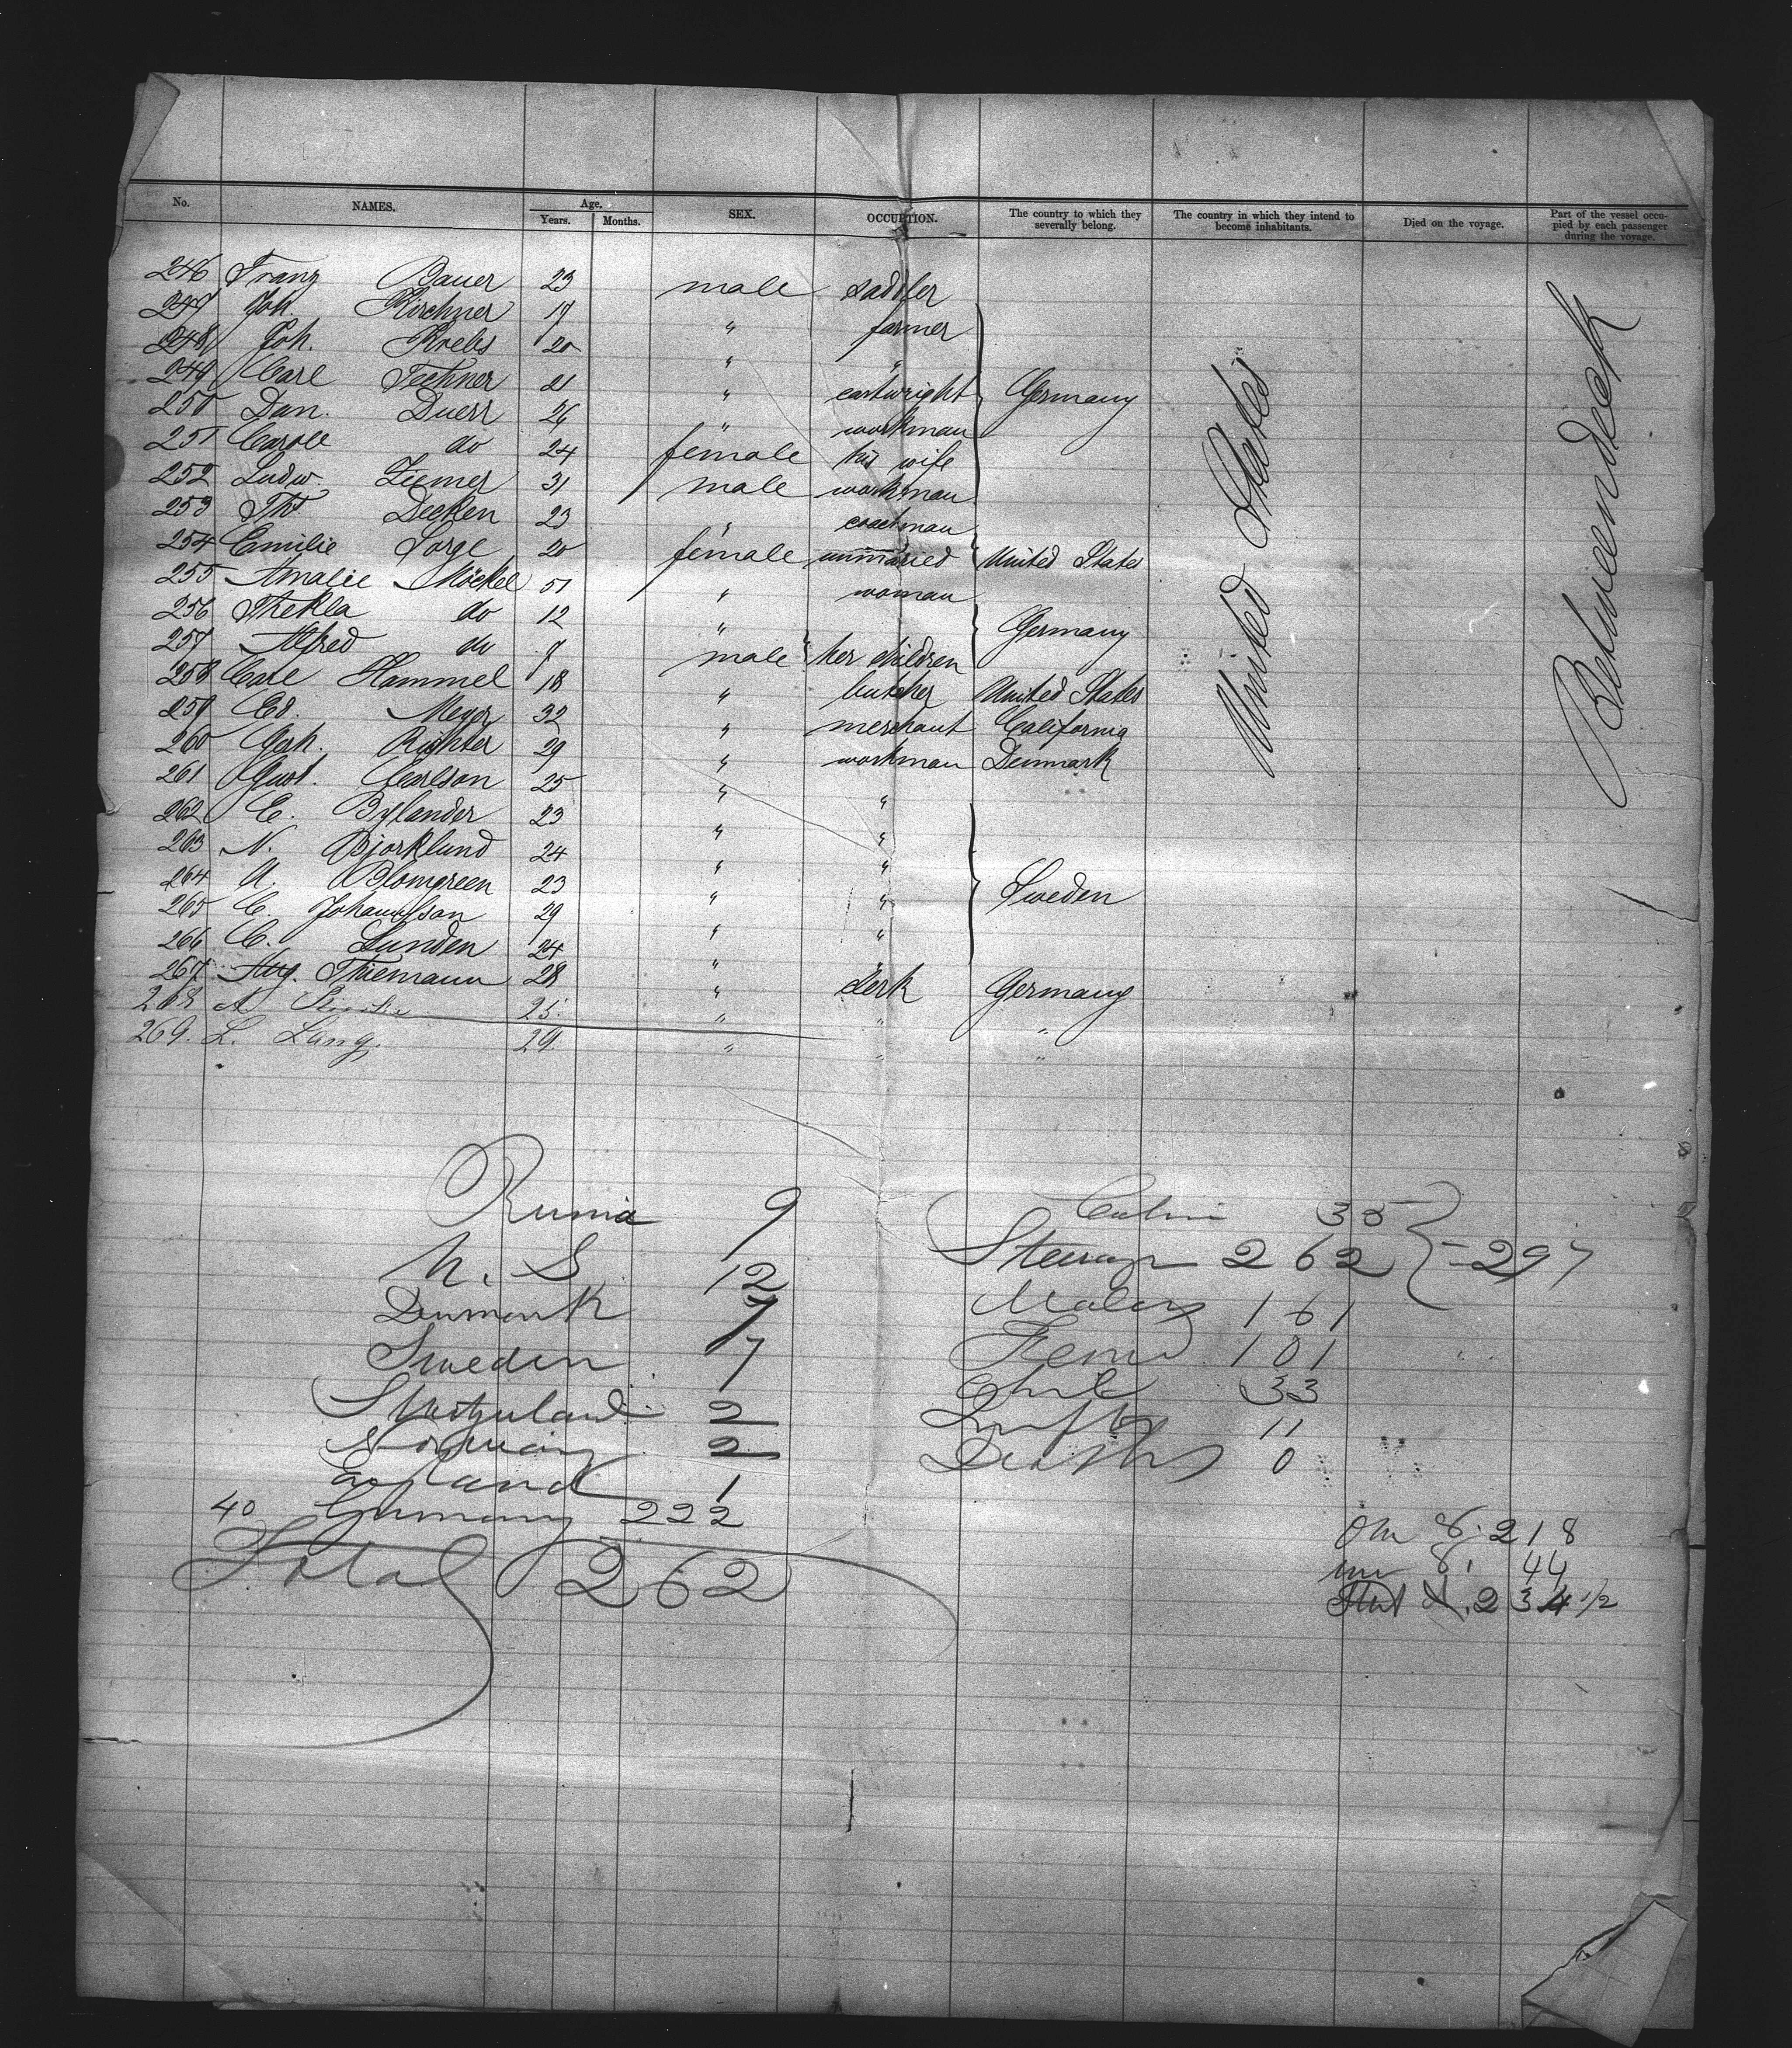 No. NAMES. Age. Years. Months. SEX. OCCUPTION. The country to which they severally belong. The country in which they intend to become inhabitants. Died on the voyage. Part of the vessel occupied by each passenger during the voyage.
246 Franz Bauer 23 male saddler
247 Joh. Kirchner 17 " farmer
248 Joh. Krebs 20 " "
249 Carl Techner 21 " cartwright Germany
250 Dan. Duerr 26 " workman
251 Carole do 24 female his wife
252 Ludw. Ziemer 31 male workman
253 Th. Decken 23 " coachman
254 Emilie Sorge 20 female unmaried United States
255 Amalie Möckel 51 " woman
256 Thekla do 12 " Germany
257 Alfred do 9 male her children
258 Carl Hammel 18 " butcher United States
259 Ed. Meyer 32 " merchant California
260 Richter 29 " workman Denmark
261 Gust. Carlson 25 " "
262 C. Bylander 23 " "
263 N. Bjorklund 24 " "
264 A. Blomgreen 23 " " Sweden
265 C. Johannson 29 " "
266 C. Lunden 24 " "
267 Aug. Thiemann 28 " clerk Germany
268 A. 25 " " "
269. L. Lang. 29 " " "
United States
Betweendeck
Russia 9
U. S. 12
Denmark 7
Sweden 7
Switzerland 2
Norway 2
England 1
40 Germany 222
Total 262
Cabin 35
Steerage 262 - 297
Males 161
Fem 101
Chil 33
Infts 11
Deaths 0
Ov 8. 218
un 8. 44
234 1/2